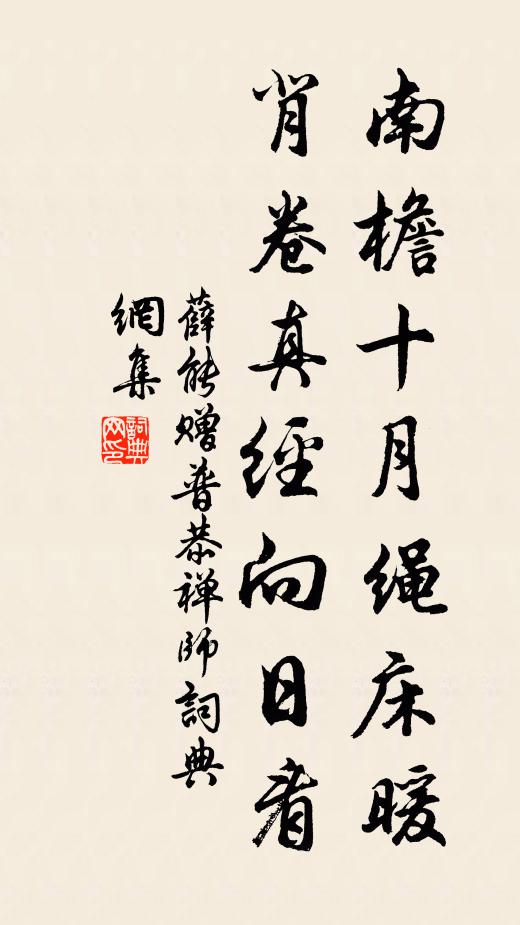 南檐十月绳床暖
背卷真經向日看
薛能赠普恭禅師詞典
網集
詞典
网印